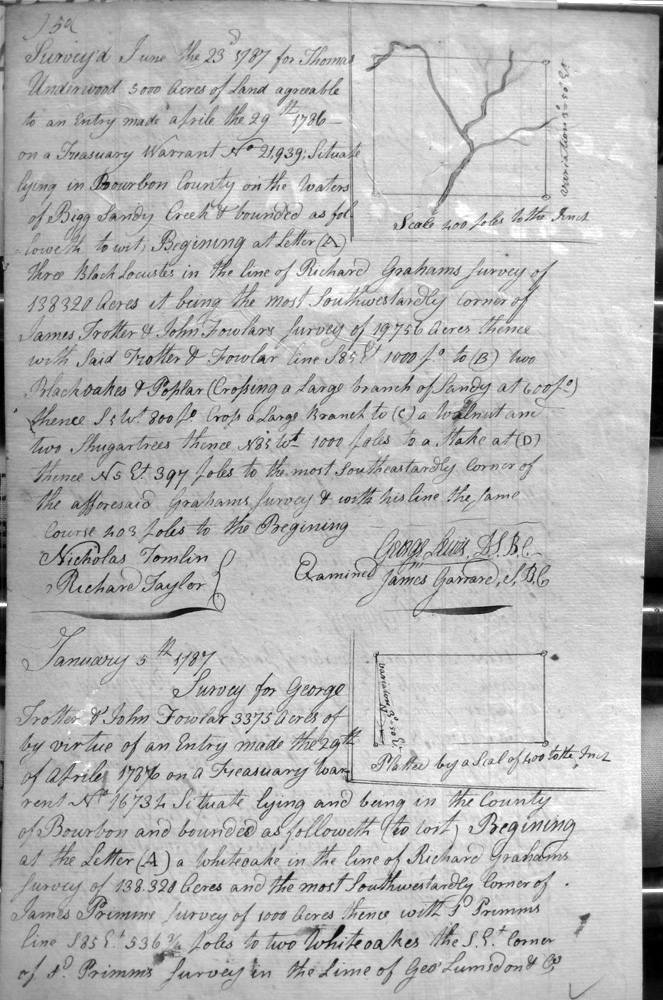 152
Survey'd June the 23d 1787 for Thomas
Underwood 5000 Acres of Land agreeable
to an Entry made aprile the 29th 1786 —
on a Treasuary Warrant No 21,939; Situate
lying in Bourbon County on the Waters
of Bigg Sandy Creek & bounded as fol-
=loweth to wit; Begining at Letter (A)
three Black Locusts in the line of Richard Grahams Survey of
138320 Acres it being the most Southwestardly Corner of
James Trotter & John Fowlars Survey of 19756 Acres thence
with Said Trotter & Fowlar line S85 Et 1000 po to (B) two
Blackoakes & Poplar (Crossing a Large branch of Sandy at 600 po)
thence S5 Wt 800 po Cross a Large Branch to (C) a Walnut and
two Shugartrees thence N85 Wt 1000 poles to a Stake at (D)
thence N5 Et 397 poles to the most Southeastardly Corner of
the afforesaid Grahams Survey & with his line the Same
Course 403 poles to the Begining
Nicholas Tomlin
Richard Taylor
George Lewis, D.S.B.C.
Examined James Garrard, S.B.C
variation 3° 50' Et
Scale 400 poles to the Inch
January 5th 1787
Survey for George
Trotter & John Fowlar 3375 Acres of
by virtue of an Entry made the 29th
of Aprile 1786 on a Treasuary War-
rent No 16734 Situate lying and being in the County
of Bourbon and bounded as followeth (to wit) Begining
at the Letter (A) a Whiteoake in the line of Richard Grahams
Survey of 138.320 Acres and the most Southwestardly Corner of
James Primms Survey of 1000 Acres thence with Sd Primms
line S85 Et 536 3/4 poles to two Whiteoakes the S.Et Corner
of sd Primms Survey in the Lime of Geo Lumsdon & Co
variation
Platted by a Scal of 400 to the Inch